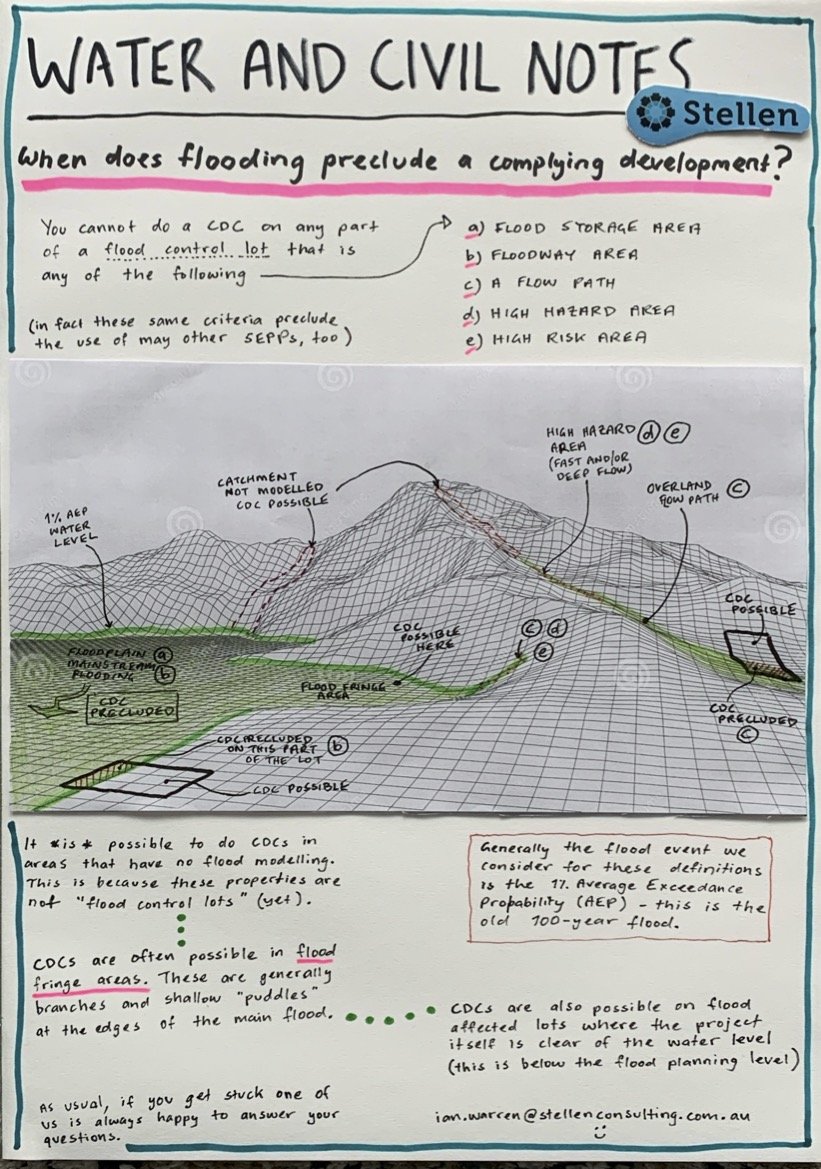 WATER AND CIVIL NOTES
Stellen
When does flooding preclude a complying development?
You cannot do a CDC on any part
of a flood control lot that is
any of the following
(in fact these same criteria preclude
the use of may other SEPPs, too)
a) FLOOD STORAGE AREA
b) FLOODWAY AREA
c) A FLOW PATH
d) HIGH HAZARD AREA
e) HIGH RISK AREA
1% AEP
WATER
LEVEL
CATCHMENT
NOT MODELLED
CDC POSSIBLE
HIGH HAZARD d e
AREA
(FAST AND/OR
DEEP FLOW)
OVERLAND
FLOW PATH c
CDC
POSSIBLE
CDC
POSSIBLE
HERE
c d
e
FLOODPLAIN a
MAINSTREAM
FLOODING b
CDC
PRECLUDED
FLOOD FRINGE
AREA
CDC
PRECLUDED
c
CDC PRECLUDED
ON THIS PART b
OF THE LOT
CDC POSSIBLE
It *is* possible to do CDCs in
areas that have no flood modelling.
This is because these properties are
not "flood control lots" (yet).
Generally the flood event we
consider for these definitions
is the 1% Average Exceedance
Probability (AEP) - this is the
old 100-year flood.
CDCs are often possible in flood
fringe areas. These are generally
branches and shallow "puddles"
at the edges of the main flood.
CDCs are also possible on flood
affected lots where the project
itself is clear of the water level
(this is below the flood planning level)
As usual, if you get stuck one of
us is always happy to answer your
questions.
ian.warren@stellenconsulting.com.au